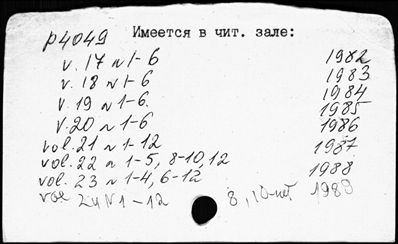 p4049 Имеется в чит. зале:
v. 17 N 1-6 1982
v. 18 N 1-6 1983
v. 19 N 1-6. 1984
v. 20 N 1-6 1985
vol. 21 N 1-12 1986
vol. 22 N 1-5, 8-10, 12 1987
vol. 23 N 1-4, 6-12 1988
vol 24 N 1-12 8, 10-нет 1989